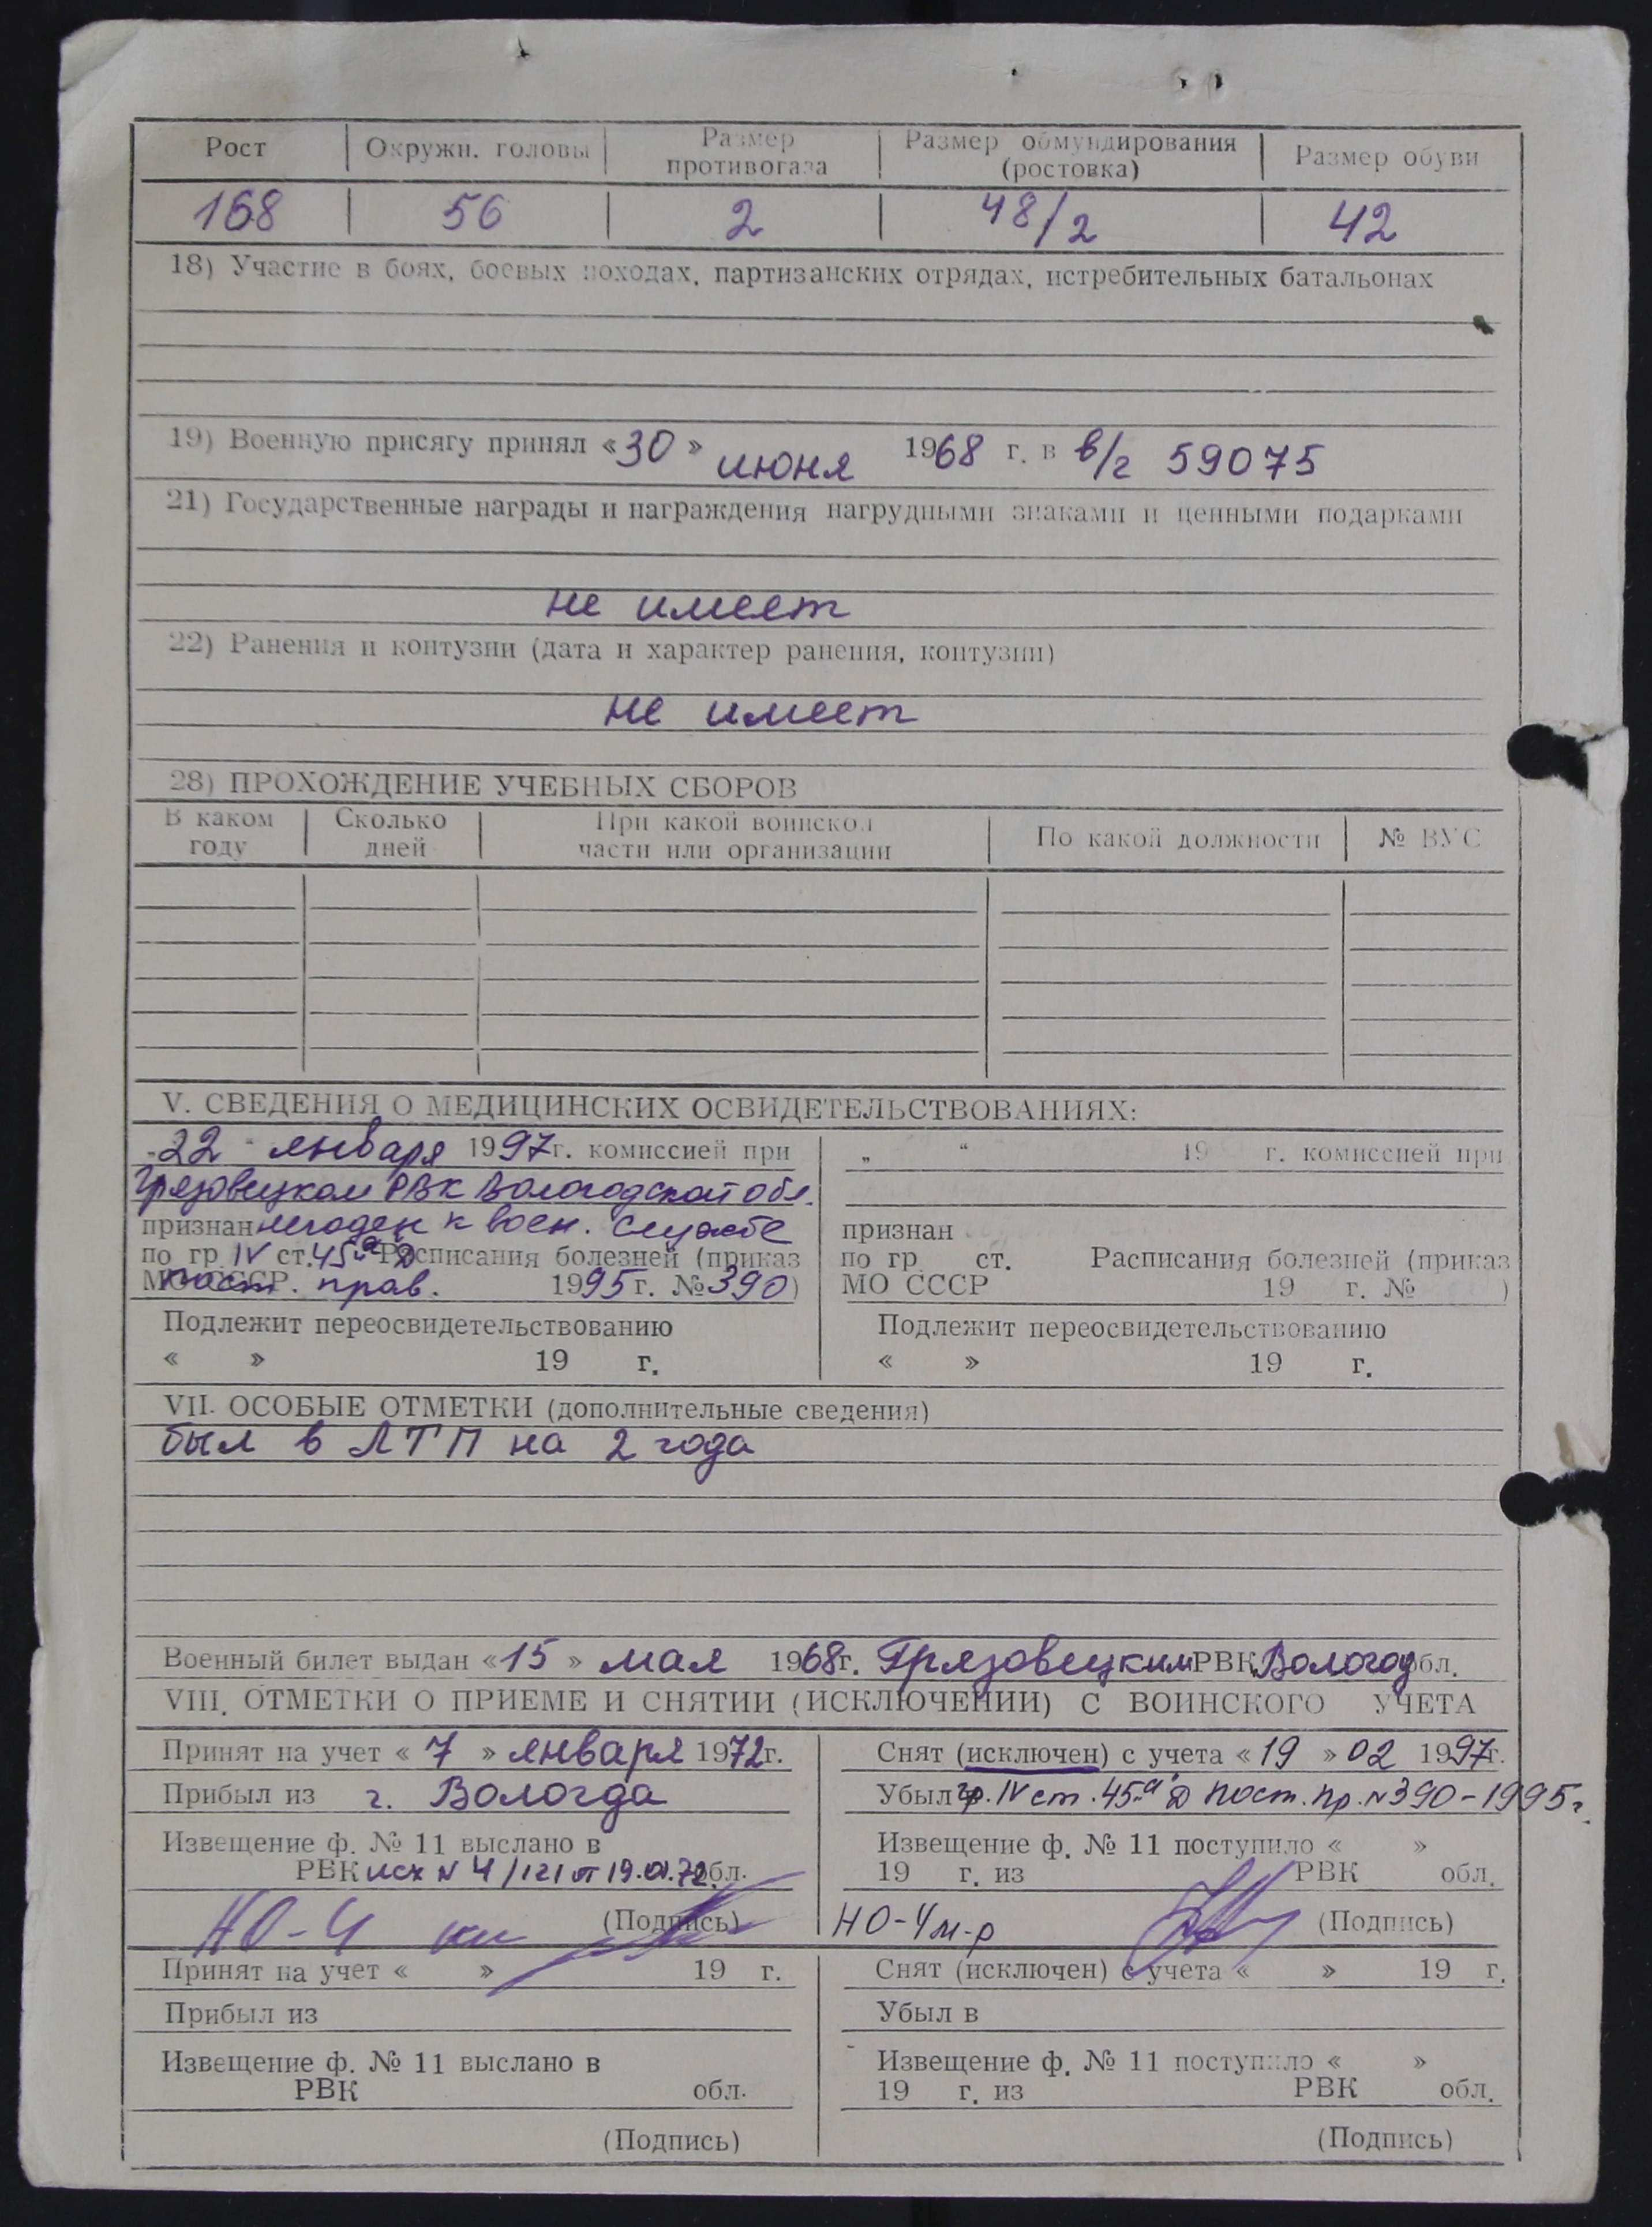 Рост Окружн. головы Размер противогаза Размер обмундирования (ростовка) Размер обуви
168 56 2 48/2 42
18) Участие в боях, боевых походах, партизанских отрядах, истребительных батальонах
19) Военную присягу принял «30» июня 1968 г. в в/г 59075
21) Государственные награды и награждения нагрудными знаками и ценными подарками
не имеет
22) Ранения и контузии (дата и характер ранения, контузии)
не имеет
28) ПРОХОЖДЕНИЕ УЧЕБНЫХ СБОРОВ
В каком году Сколько дней При какой воинской части или организации По какой должности № ВУС
V. СВЕДЕНИЯ О МЕДИЦИНСКИХ ОСВИДЕТЕЛЬСТВОВАНИЯХ:
22 января 1997г. комиссией при
Грязовецком РВК Вологодской обл.
признан негоден к воен. службе
по гр. IV ст. 45 "а" Д Расписания болезней (приказ
МО СССР пост. прав. 1995 г. № 390)
Подлежит переосвидетельствованию
« » 19 г.
„ “ 19 г. комиссией при
признан
по гр. ст. Расписания болезней (приказ
МО СССР 19 г. № )
Подлежит переосвидетельствованию
« » 19 г.
VII. ОСОБЫЕ ОТМЕТКИ (дополнительные сведения)
был в ЛТП на 2 года
Военный билет выдан «15» мая 1968г. Грязовецким РВК Вологод обл.
VIII. ОТМЕТКИ О ПРИЕМЕ И СНЯТИИ (ИСКЛЮЧЕНИИ) С ВОИНСКОГО УЧЕТА
Принят на учет «7» января 1972г.
Прибыл из г. Вологда
Извещение ф. № 11 выслано в
РВК исх N 4/121 от 19.01.72. обл.
НО-4 (Подпись)
Снят (исключен) с учета «19» 02 1997г.
Убыл гр. IV ст. 45 "а" Д Пост. пр. N 390-1995г.
Извещение ф. № 11 поступило « »
19 г. из РВК обл.
НО-4 м-р (Подпись)
Принят на учет « » 19 г.
Прибыл из
Извещение ф. № 11 выслано в
РВК обл.
(Подпись)
Снят (исключен) с учета « » 19 г.
Убыл в
Извещение ф. № 11 поступило « »
19 г. из РВК обл.
(Подпись)